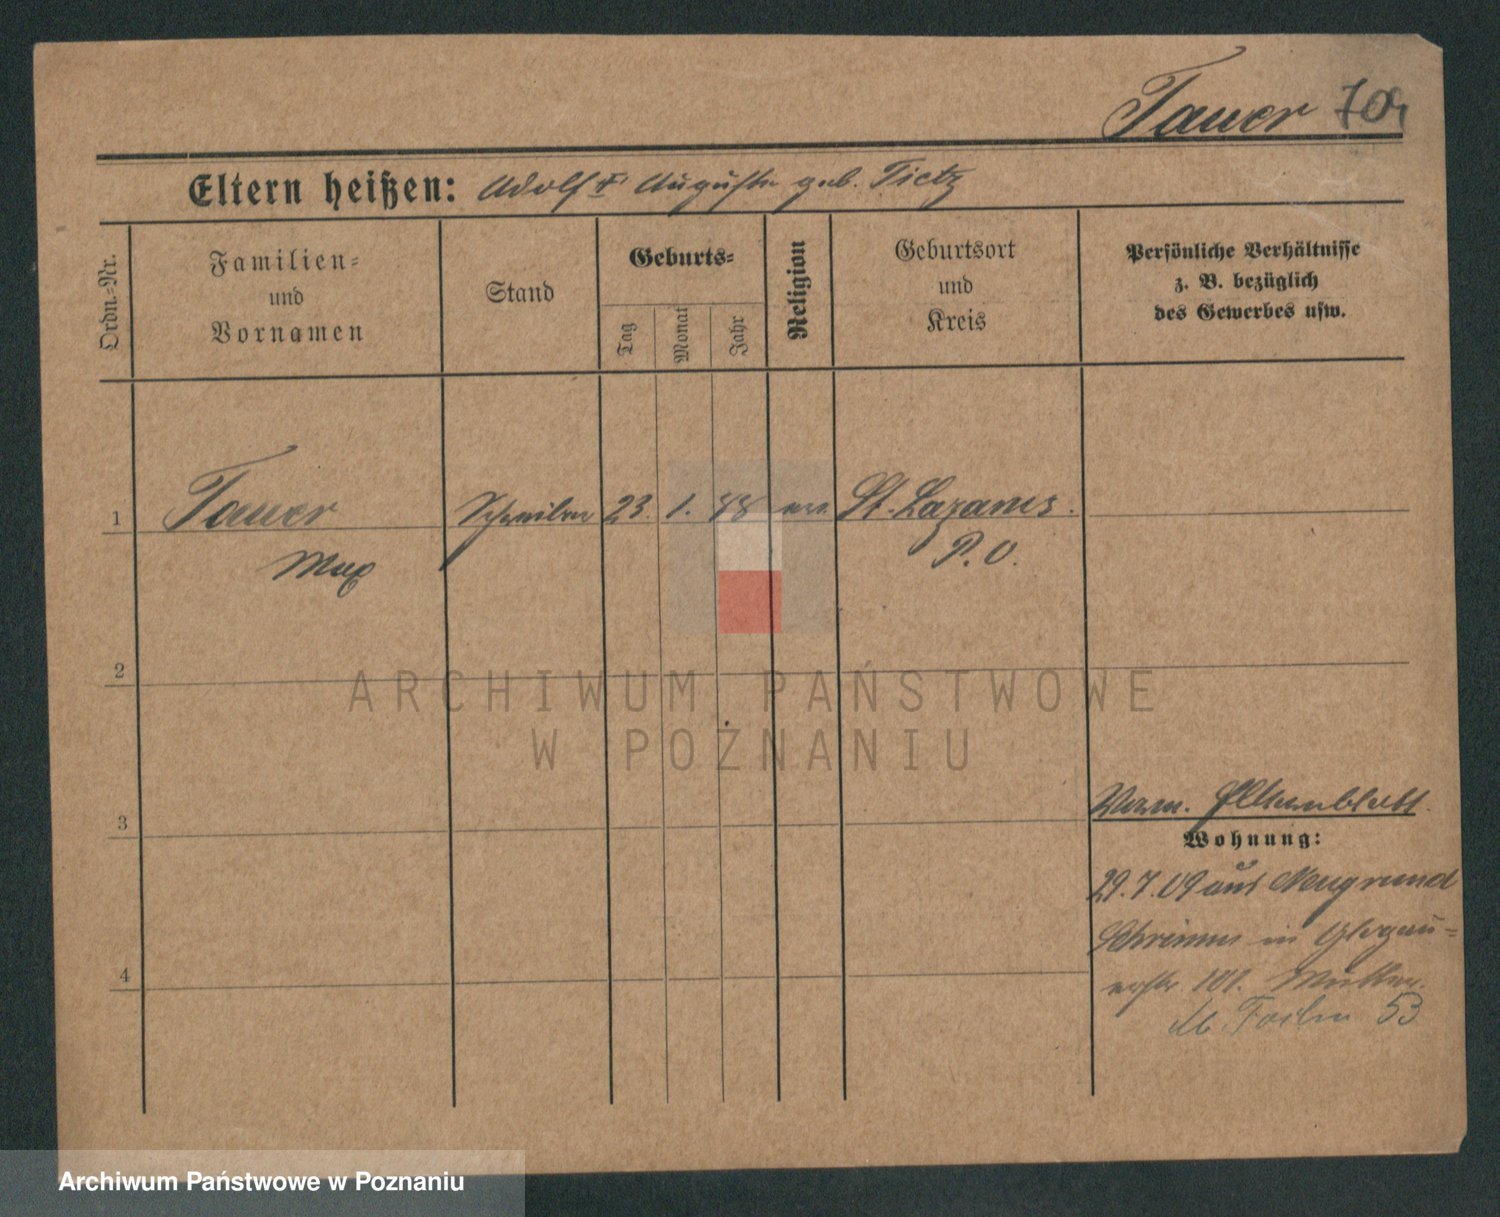 Tauer 709
Eltern heißen: Adolf u. Auguste geb. Tietz
Ordn.-Nr.
Familien-
und
Vornamen
Stand
Geburts-
Tag
Monat
Jahr
Religion
Geburtsort
und
Kreis
Persönliche Verhältnisse
z. B. bezüglich
des Gewerbes usw.
1 Tauer Schreiber 23. 1. 48 ev. St. Lazarus.
Max P. O.
2
ARCHIWUM PAŃSTWOWE
W POZNANIU
3
Wohnung:
29.7.09 aus Neugrund
Schrimm in Glogau-
erstr 101.
4
53
Archiwum Państwowe w Poznaniu